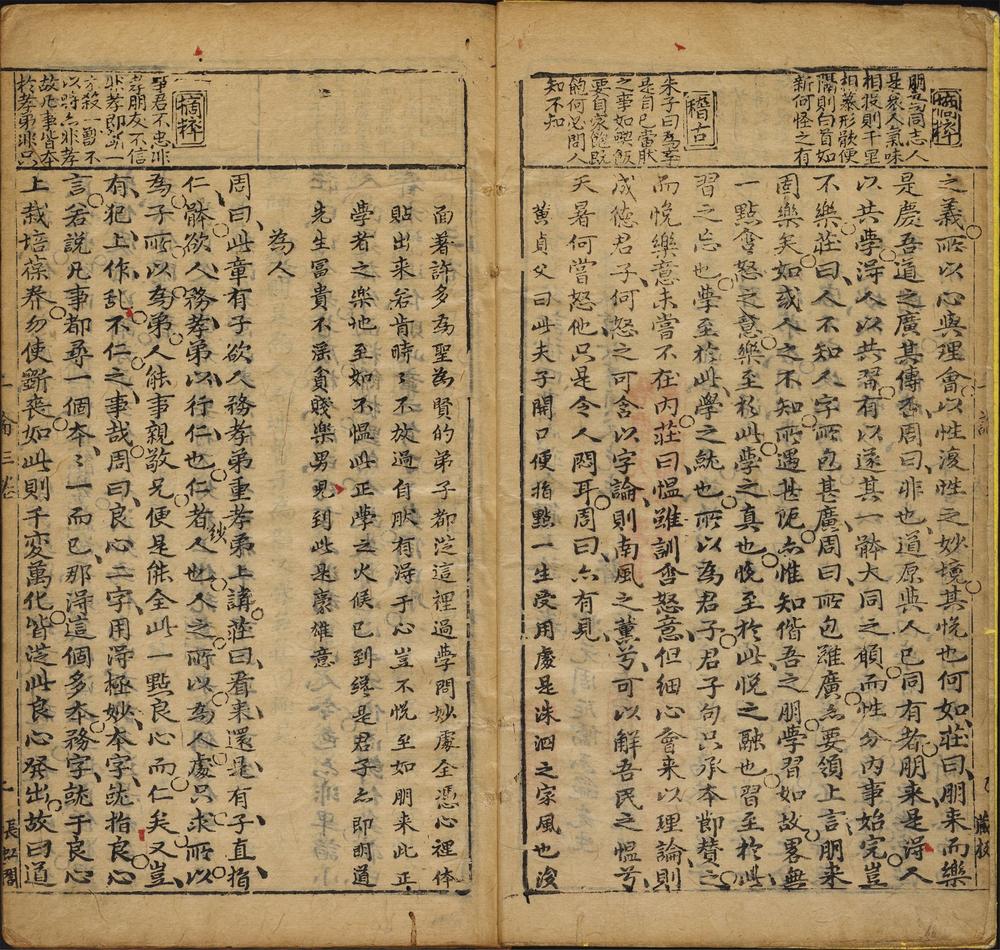 摘粹
朋友同志人
是眾人氣味
相投則千里
相慕形歡便
隔則白首如
新何怪之有
稽古
朱子曰為學
是自己當然
之事如喫飯
要自家飽既
飽何必問人
知不知
之義所以心與理會以性復性之妙境其悅也何如莊曰朋來而樂
是慶吾道之廣其傳否周曰非也道原與人己同有者朋來是得人
以共學得人以共習有以遂其一體大同之願而性分內事始完豈
不樂莊曰人不知人字所包甚廣周曰所包雖廣亦要領上言朋來
固樂矣如或人之不知所遇甚阨亦惟知偕吾之朋學習如故畧無
一點含怒之意樂至於此學之真也悅至於此悅之融也習至於此
習之忘也學至於此學之純也所以為君子君子句只承本節贊之
而悅樂意未嘗不在內莊曰慍雖訓含怒意但細心會來以理論則
成德君子何怒之可含以字論則南風之薰兮可以解吾民之慍兮
天暑何嘗怒他只是令人悶耳周曰亦有見
黃貞父曰此夫子開口便指點一生受用處是洙泗之家風也後
面著許多為聖為賢的弟子都從這裡過學問妙處全憑心裡体
貼出來若肯時〻不放過自肰有淂于心豈不悅至如朋來此正
學者之樂地至如不慍此正學之火候已到纔是君子亦即明道
先生富貴不淫貧賤樂男兒到此是豪雄意
為人
摘粹
事君不忠非
孝朋友不信
非孝即斷一
木殺一獸不
以時亦非孝
故凡事皆本
於孝弟非只
周曰此章有子欲人務孝弟重孝弟上講莊曰看來還是有子直指
仁體欲人務孝弟以行仁也仁者人也人之所以為人處只求所以
為子所以為弟人能事親敬兄便是能全此一點良心而仁矣又豈
有犯上作乱不仁之事哉周曰良心二字用淂極妙本字就指良心
言若說凡事都尋一個本〻一而已那淂這個多本務字就于良心
上栽培葆養勿使斷喪如此則千變萬化皆從此良心發出故曰道